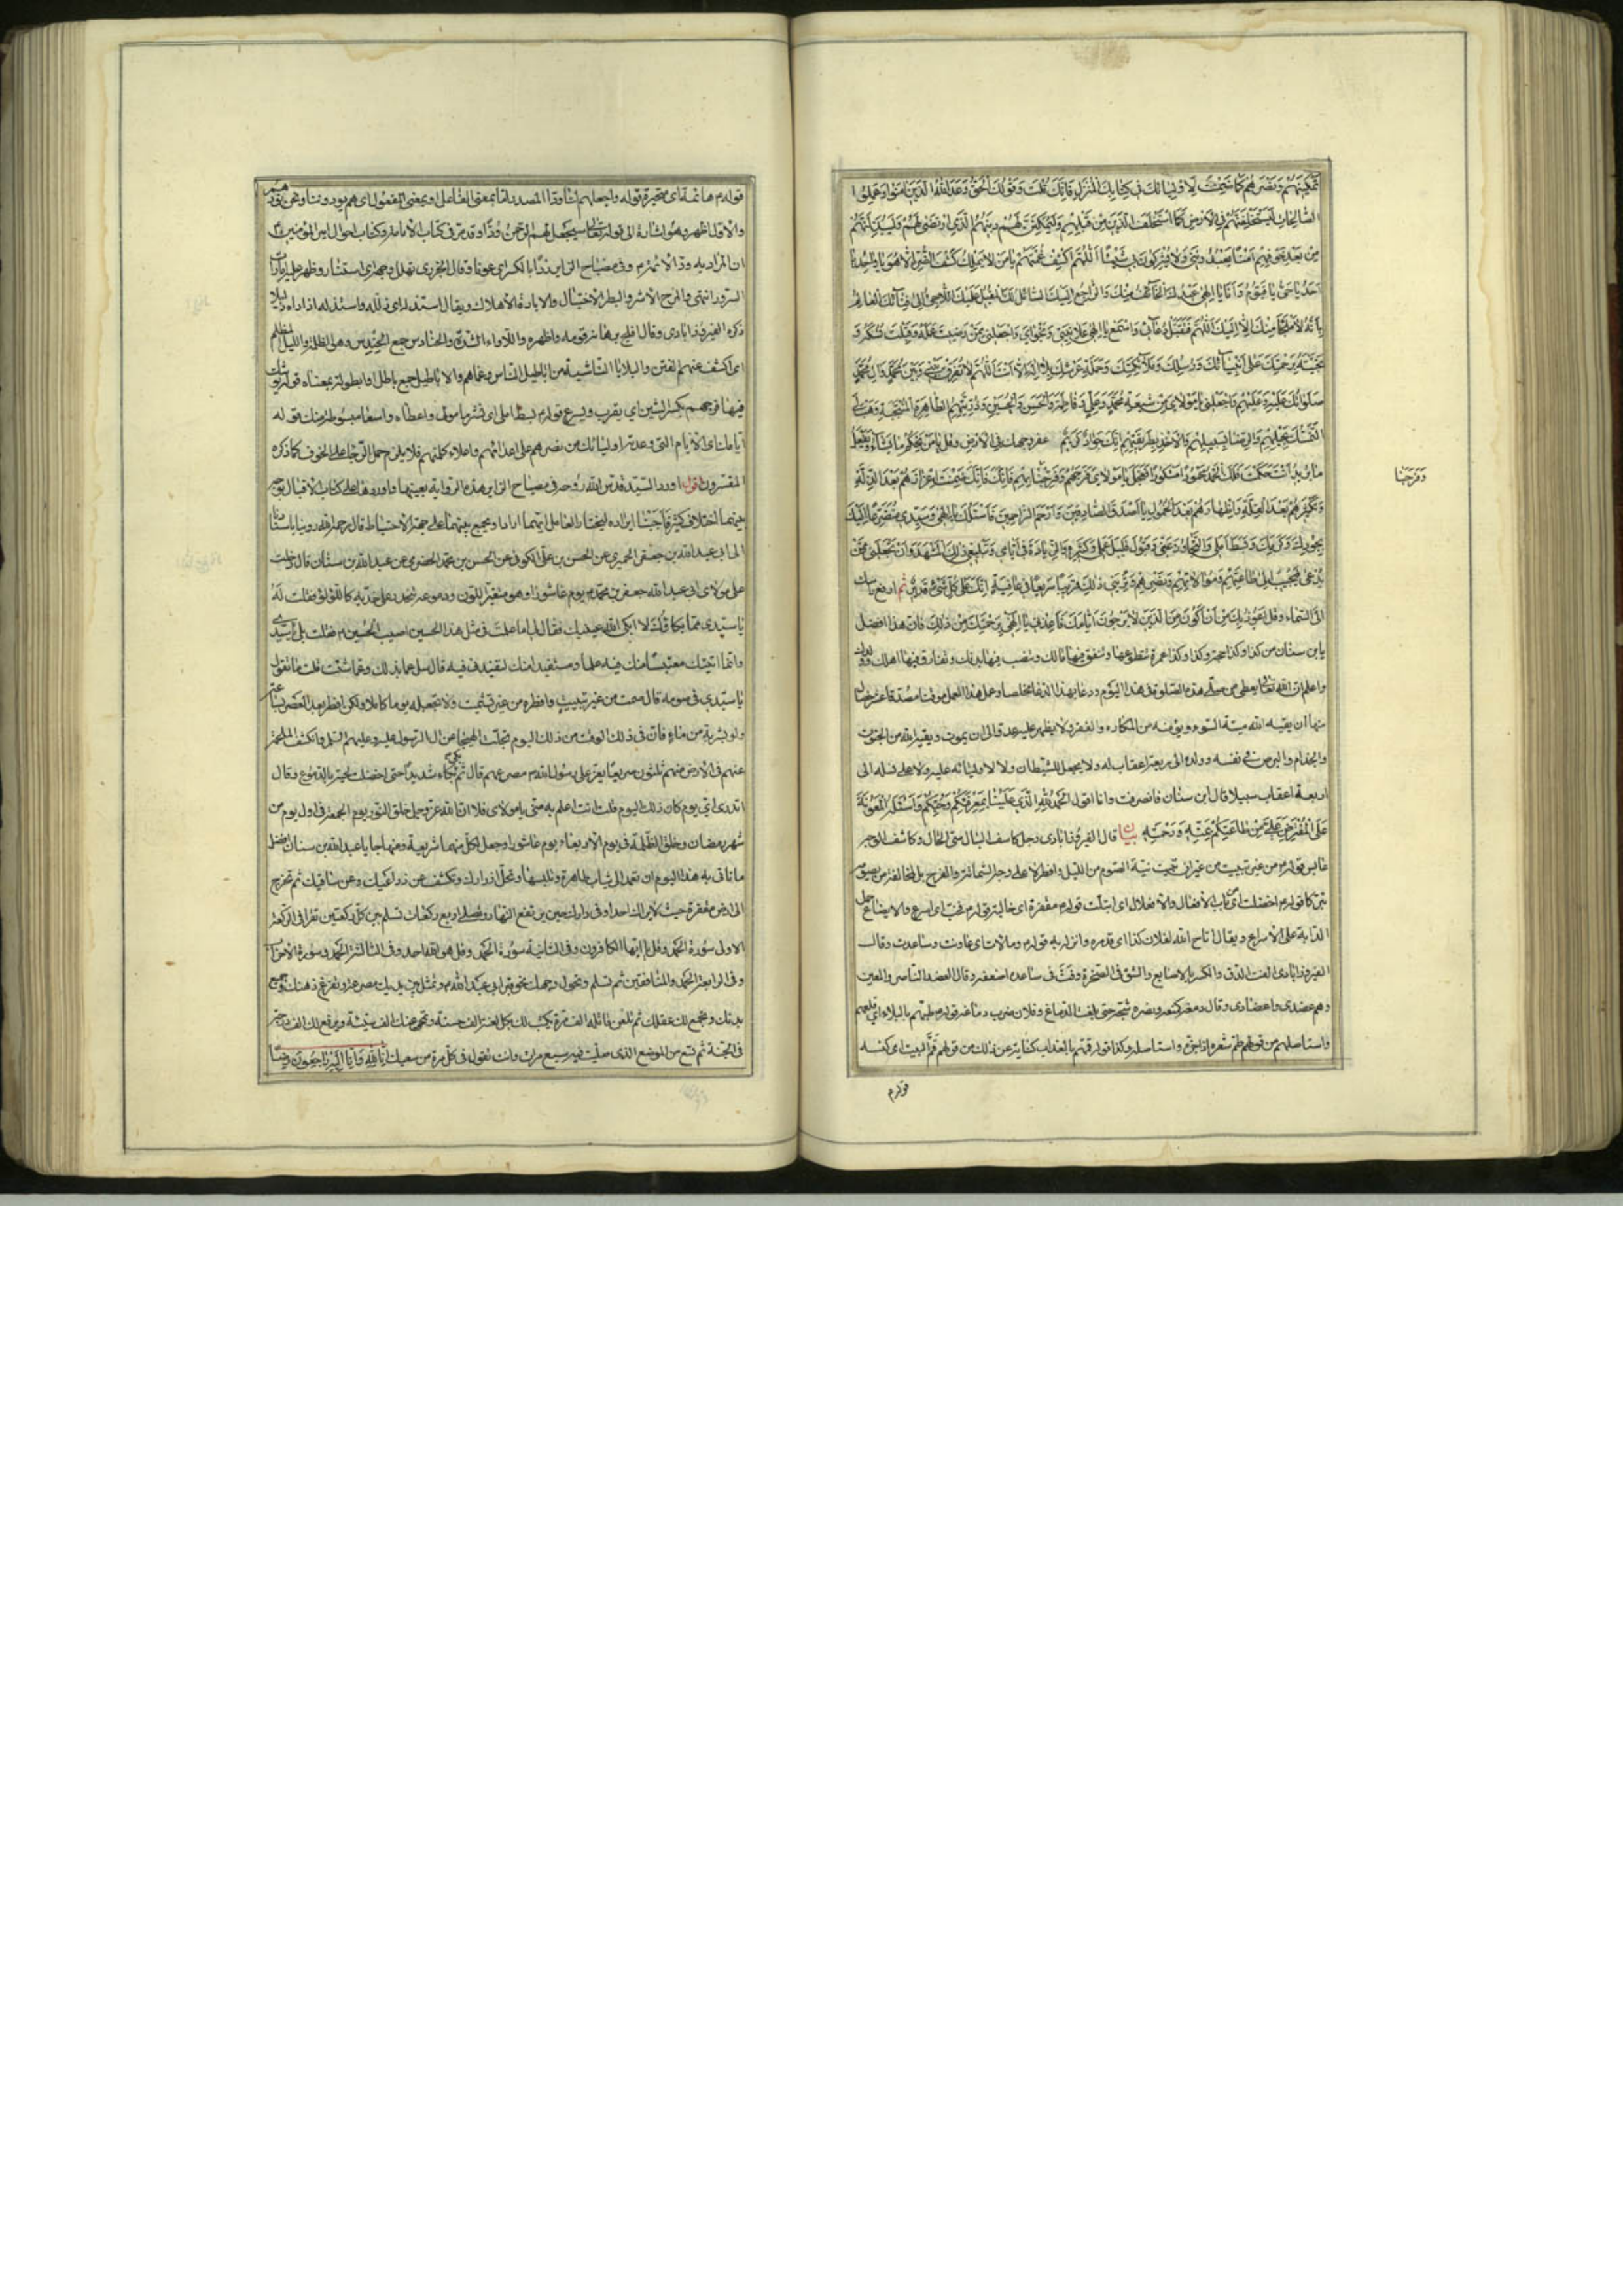 تمكينهم ونصرهم كما ضمنت لأوليائك في كتابك المنزل فإنك قلت وقولك الحق وعد الله الذين آمنوا وعملوا
الصالحات ليستخلفنهم في الأرض كما استخلف الذين من قبلهم وليمكنن لهم دينهم الذي ارتضى لهم وليبدلنهم
من بعد خوفهم أمنا يعبدونني ولا يشركون بي شيئا اللهم اكشف غمتهم يا من لا يملك كشف الضر إلا هو يا واحد يا
أحد يا حي يا قيوم وأنا يا إلهي عبدك الخائف منك والراجع إليك السائل لك المقبل عليك اللاجئ إلى فنائك العالم
بأنه لا ملجأ منك إلا إليك اللهم فتقبل دعائي واسمع يا إلهي علانيتي ونجواي واجعلني ممن رضيت عمله وقبلت نسكه و
نجيته برحمتك على أنبيائك ورسلك وملائكتك وحملة عرشك بلا إله إلا أنت اللهم لا تفرق بيني وبين محمد وآل محمد
صلواتك عليه وعليهم واجعلني يا مولاي من شيعة محمد وعلي وفاطمة والحسن والحسين وذريتهم الطاهرة المنتجبة وهب لي
التمسك بحبلهم والرضا بسبيلهم والأخذ بطريقتهم إنك جواد كريم عفر وجهك في الأرض وقل يا من يحكم ما يشاء ويفعل
ما يريد أنت حكمت فلك الحمد محمودا مشكورا فعجل يا مولاي فرجهم وفرجنا بهم فإنك ضمنت إعزازهم بعد الذلة
وتكثيرهم بعد القلة وإظهارهم بعد الخمول يا أصدق الصادقين ويا أرحم الراحمين فأسئلك يا إلهي وسيدي متضرعا إليك
بجودك وكرمك وبسط أملي والتجاوز عني وقبول قليل عملي وكثيره والزيادة في أيامي وتبليغي ذلك المشهد وأن تجعلني ممن
يدعى فيجيب إلى طاعتهم وموالاتهم ونصرهم وتريني ذلك قريبا سريعا في عافية إنك على كل شيء قدير ثم ارفع رأسك
إلى السماء وقل أعوذ بك من أن أكون من الذين لا يرجون أيامك فأعذني يا إلهي برحمتك من ذلك فإن هذا أفضل
يا بن سنان من كذا وكذا حجة وكذا وكذا عمرة تتطوعها وتنفق فيها مالك وتنصب فيها بدنك وتفارق فيها أهلك وولدك
واعلم أن الله تعالى يعطي من صلى هذه الصلوة في هذا اليوم ودعا بهذا الدعاء مخلصا وعمل هذا العمل موقنا مصدقا عشر خصال
منها أن يقيه الله ميتة السوء ويؤمنه من المكاره والفقر ولا يظهر عليه عدوا إلى أن يموت ويقيه الله من الجنون
والجذام والبرص في نفسه وولده إلى أربعة أعقاب له ولا يجعل للشيطان ولا لأوليائه عليه ولا على نسله إلى
أربعة أعقاب سبيلا قال ابن سنان فانصرفت وأنا أقول الحمد لله الذي من علينا بمعرفتكم وحبكم وأسئله المعونة
على المفترض علي من طاعتكم بمنه ورحمته بيان قال الفيروزآبادي رجل كاسف البال سيئ الحال وكاسف الوجه
عابس قوله من غير تبييت من غير أن تبيت نية الصوم من الليل وافطره لا على وجه الشماتة والفرح بل لمخالفة من يصومه
تبركا قوله اخضلت من باب الافعلال والافعيلال أي ابتلت قوله مقفرة أي خالية قوله فخب أي أسرع والإيضاع حمل
الدابة على الإسراع ويقال أتاح الله لفلان كذا أي قدره وأنزله به قوله ومالأت أي عاونت وساعدت وقال
الفيروزآبادي الفت الدق والكسر بالأصابع والشق في الصخرة وفت في ساعده أضعفه وقال العضد الناصر والمعين
وهم عضدي وأعضادي وقال دمغه كمنعه ونصره شجه حتى بلغت الدماغ وفلان ضرب دماغه قوله طمهم بالبلاء أي قلعهم
واستأصلهم من قولهم طم شعره إذا جزه واستأصله وكذا قوله قمهم بالعذاب كناية عن ذلك من قولهم قم البيت أي كنسه
وفرجنا
قوله
قوله هائمة أي متحيرة قوله واجعلهم لنا ودا المصدر إما بمعنى الفاعل أو بمعنى المفعول أي هم يودوننا ونحن نودهم
والأول أظهر وهو إشارة إلى قوله تعالى سيجعل لهم الرحمن ودا وقد مر في كتاب الإمامة وكتاب أحوال أمير المؤمنين
أن المراد به ود الأئمة وفي مصباح الزائر ردءا بالكسر أي عونا وقال الجزري تهلل وجهه أي استنار وظهر عليه أمارات
السرور انتهى والمرح الأشر والبطر والاختيال والإبادة الإهلاك ويقال استذله أي ذلله واستذله إذا رآه ذليلا
ذكره الفيروزآبادي وقال أفلج برهانه قومه وأظهره واللأواء الشدة والحنادس جمع الحندس وهي الظلمة والليل المظلم
أي اكشف عنهم الفتن والبلايا الناشية من أباطيل الناس وعماهم والأباطيل جمع باطل أو ابطولة بمعناه قوله يوشك
فيها فرجهم بكسر الشين أي يقرب ويسرع قوله بسط أملي أي نشر مأمولي وإعطاءه واسعا مبسوطا منك قوله
أيامك أي الأيام التي وعدتها أولياءك من نصرهم على أعدائهم وإعلاء كلمتهم فلا يلزم حمل الرجاء على الخوف كما ذكره
المفسرون أقول أورد السيد قدس الله روحه في مصباح الزائر هذه الرواية بعينها وأوردها في كتاب الإقبال بوجه
بينهما اختلاف كثير فأحببنا إيراده ليختار العامل أيهما أراد أو يجمع بينهما على جهة الاحتياط قال رحمه الله روينا بإسنادنا
إلى أبي عبد الله بن جعفر الحميري عن الحسن بن علي الكوفي عن الحسن بن محمد الحضرمي عن عبد الله بن سنان قال دخلت
على مولاي أبي عبد الله جعفر بن محمد يوم عاشورا وهو متغير اللون ودموعه تنحدر على خديه كاللؤلؤ فقلت له
يا سيدي مما بكاؤك لا أبكى الله عينيك فقال لي أما علمت في مثل هذا الحسين أصيب الحسين فقلت بلى يا سيدي
وإنما أتيتك مقتبسا منك فيه علما ومستفيدا منك لتفيدني فيه قال سل عما بدا لك وعما شئت قلت ما تقول
يا سيدي في صومه قال صمه من غير تبييت وافطره من غير تشميت ولا تجعله يوما كاملا ولكن افطر بعد العصر بساعة
ولو بشربة من ماء فإن في ذلك الوقت من ذلك اليوم تجلت الهيجاء عن آل الرسول عليه وعليهم السلام وانكشف الملحمة
عنهم وفي الأرض منهم ثلثون صريعا يعز على رسول الله مصرعهم قال ثم بكى بكاء شديدا حتى اخضلت لحيته بالدموع وقال
أتدري أي يوم كان ذلك اليوم قلت أنت أعلم به مني يا مولاي قال إن الله عز وجل خلق النور يوم الجمعة في أول يوم من
شهر رمضان وخلق الظلمة في يوم الأربعاء يوم عاشورا وجعل لكل منهما شرعة ومنهاجا يا عبد الله بن سنان أفضل
ما تأتي به هذا اليوم أن تعمد إلى ثياب طاهرة وتلبسها وتحل أزرارك وتكشف عن ذراعيك وعن ساقيك ثم تخرج
إلى أرض مقفرة حيث لا يراك أحد أو في دارك حين يرتفع النهار وتصلي أربع ركعات تسلم بين كل ركعتين تقرأ في الركعة
الأولى سورة الحمد وقل يا أيها الكافرون وفي الثانية سورة الحمد وقل هو الله أحد وفي الثالثة الحمد وسورة الأحزاب
وفي الرابعة الحمد والمنافقين ثم تسلم وتحول وجهك نحو قبر أبي عبد الله وتمثل بين يديك مصرعه وتفرغ ذهنك وجميع
بدنك وتجمع له عقلك ثم تلعن قاتله ألف مرة يكتب لك بكل لعنة ألف حسنة وتمحى عنك ألف سيئة ويرفع لك ألف درجة
في الجنة ثم تسع من الموضع الذي صليت فيه سبع مرات وأنت تقول في كل مرة من سعيك إنا لله وإنا إليه راجعون رضا